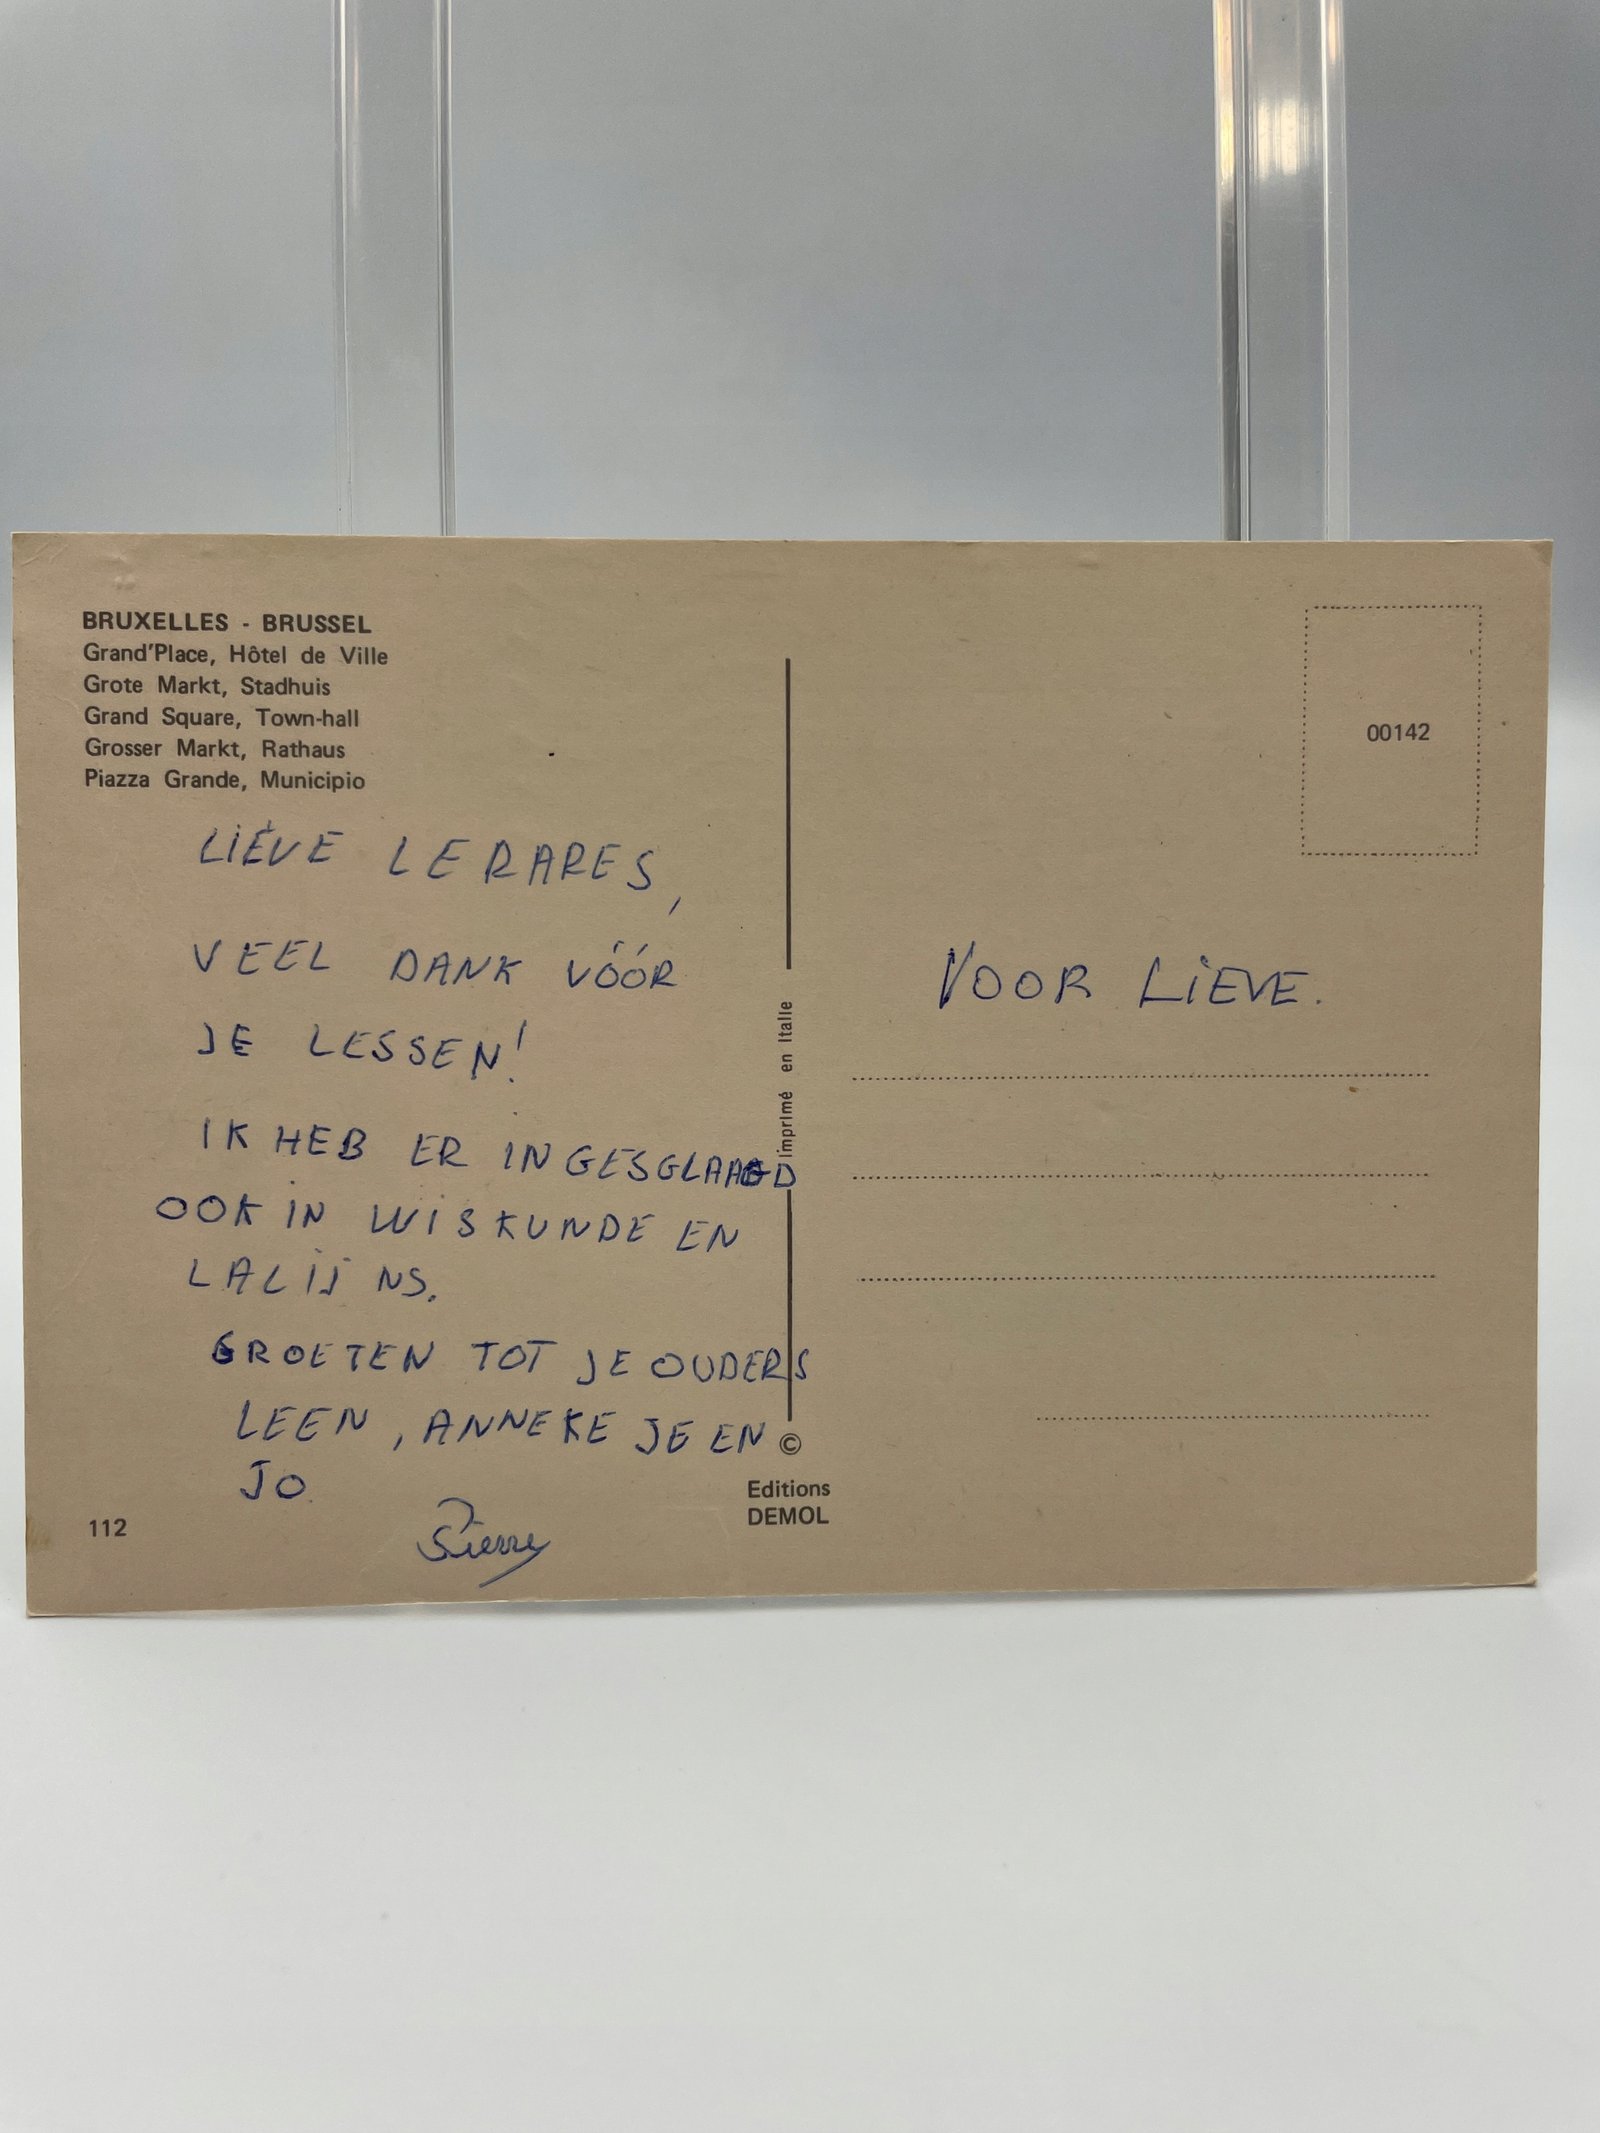 BRUXELLES - BRUSSEL
Grand'Place, Hôtel de Ville
Grote Markt, Stadhuis
Grand Square, Town-hall
Grosser Markt, Rathaus
Piazza Grande, Municipio
LIÉVE LERARES,
VEEL DANK VÓÓR
JE LESSEN!
IK HEB ER IN GESGLAAGD
OOK IN WISKUNDE EN
LALIJNS.
GROETEN TOT JE OUDERS
LEEN, ANNEKE JE EN
JO.
Pierre
112
Imprimé en Italie
©
Editions
DEMOL
00142
VOOR LIEVE.